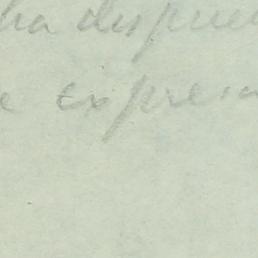 ha dispue
e expresa